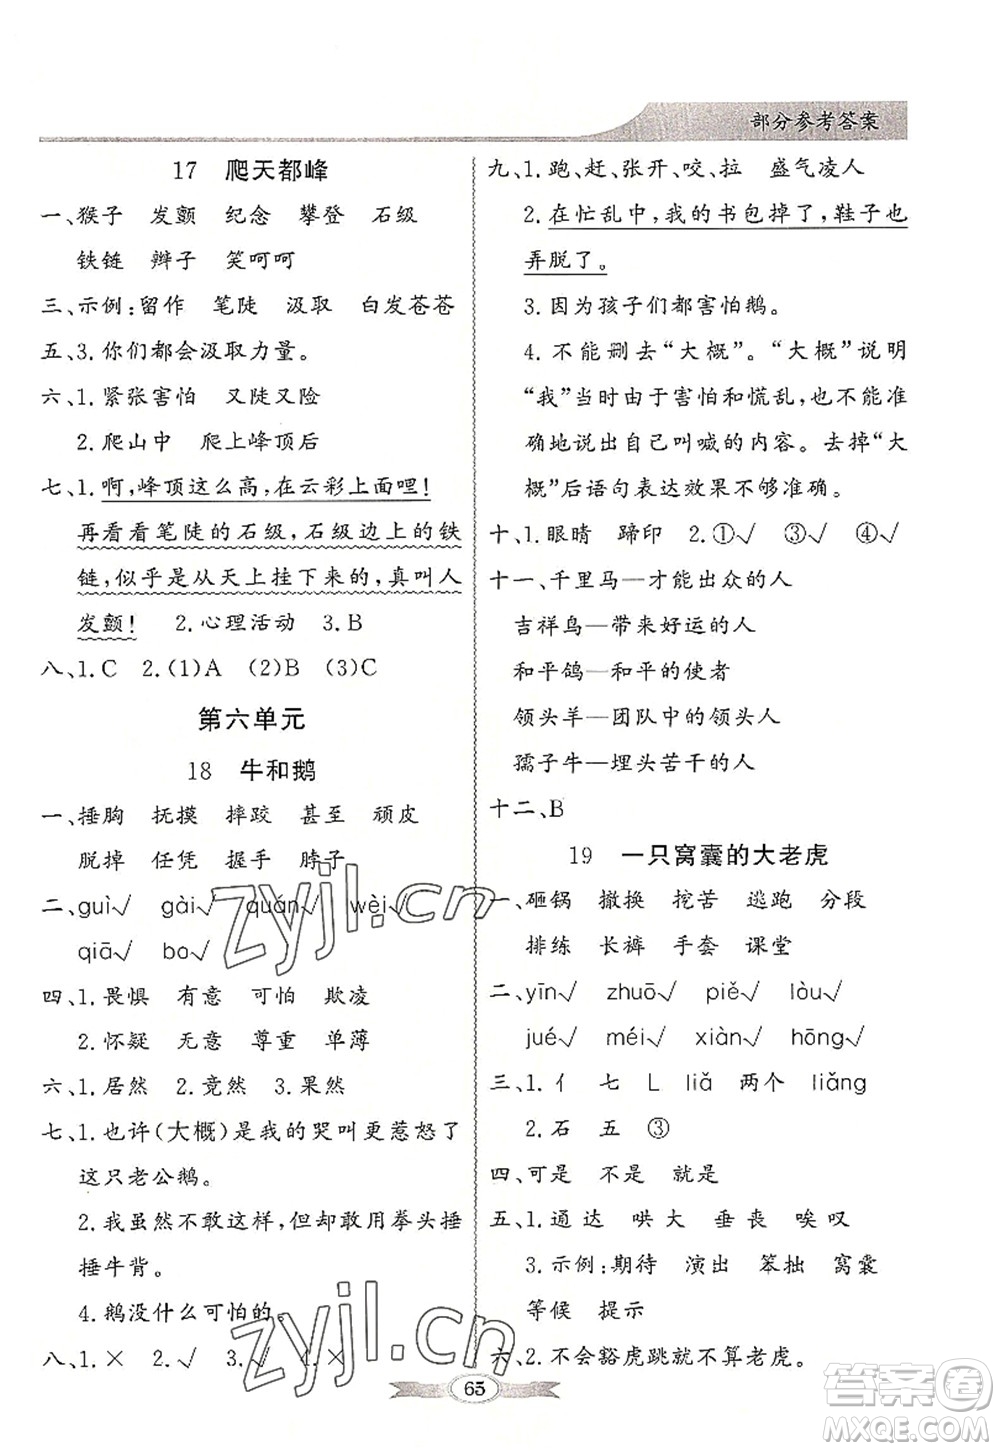 部分参考答案
17 爬天都峰
一、猴子 发颤 纪念 攀登 石级
铁链 辫子 笑呵呵
三、示例:留作 笔陡 汲取 白发苍苍
五、3. 你们都会汲取力量。
六、1. 紧张害怕 又陡又险
2. 爬山中 爬上峰顶后
七、1. 啊,峰顶这么高,在云彩上面哩!
再看看笔陡的石级,石级边上的铁
链,似乎是从天上挂下来的,真叫人
发颤! 2. 心理活动 3. B
八、1. C 2. (1)A (2)B (3)C
第六单元
18 牛和鹅
一、捶胸 抚摸 摔跤 甚至 顽皮
脱掉 任凭 握手 脖子
二、guì√ gài√ quán√ wèi√
qiā√ bo√
四、1. 畏惧 有意 可怕 欺凌
2. 怀疑 无意 尊重 单薄
六、1. 居然 2. 竟然 3. 果然
七、1. 也许(大概)是我的哭叫更惹怒了
这只老公鹅。
2. 我虽然不敢这样,但却敢用拳头捶
捶牛背。
4. 鹅没什么可怕的。
八、1. × 2. √ 3. √ 4. ×
九、1. 跑、赶、张开、咬、拉 盛气凌人
2. 在忙乱中,我的书包掉了,鞋子也
弄脱了。
3. 因为孩子们都害怕鹅。
4. 不能删去“大概”。“大概”说明
“我”当时由于害怕和慌乱,不能准
确地说出自己叫喊的内容。去掉“大
概”后语句表达效果不够准确。
十、1. 眼睛 蹄印 2. ①√ ③√ ④√
十一、千里马—才能出众的人
吉祥鸟—带来好运的人
和平鸽—和平的使者
领头羊—团队中的领头人
孺子牛—埋头苦干的人
十二、B
19 一只窝囊的大老虎
一、砸锅 撤换 挖苦 逃跑 分段
排练 长裤 手套 课堂
二、yīn√ zhuō√ piě√ lòu√
jué√ méi√ xiàn√ hōng√
三、1. 亻 七 L liǎ 两个 liǎng
2. 石 五 ③
四、可是 不是 就是
五、1. 通达 哄大 垂丧 唉叹
3. 示例:期待 演出 笨拙 窝囊
等候 提示
六、2. 不会豁虎跳就不算老虎。
65
zyjl.cn
zyjl.cn
答案圈
MXQE.COM